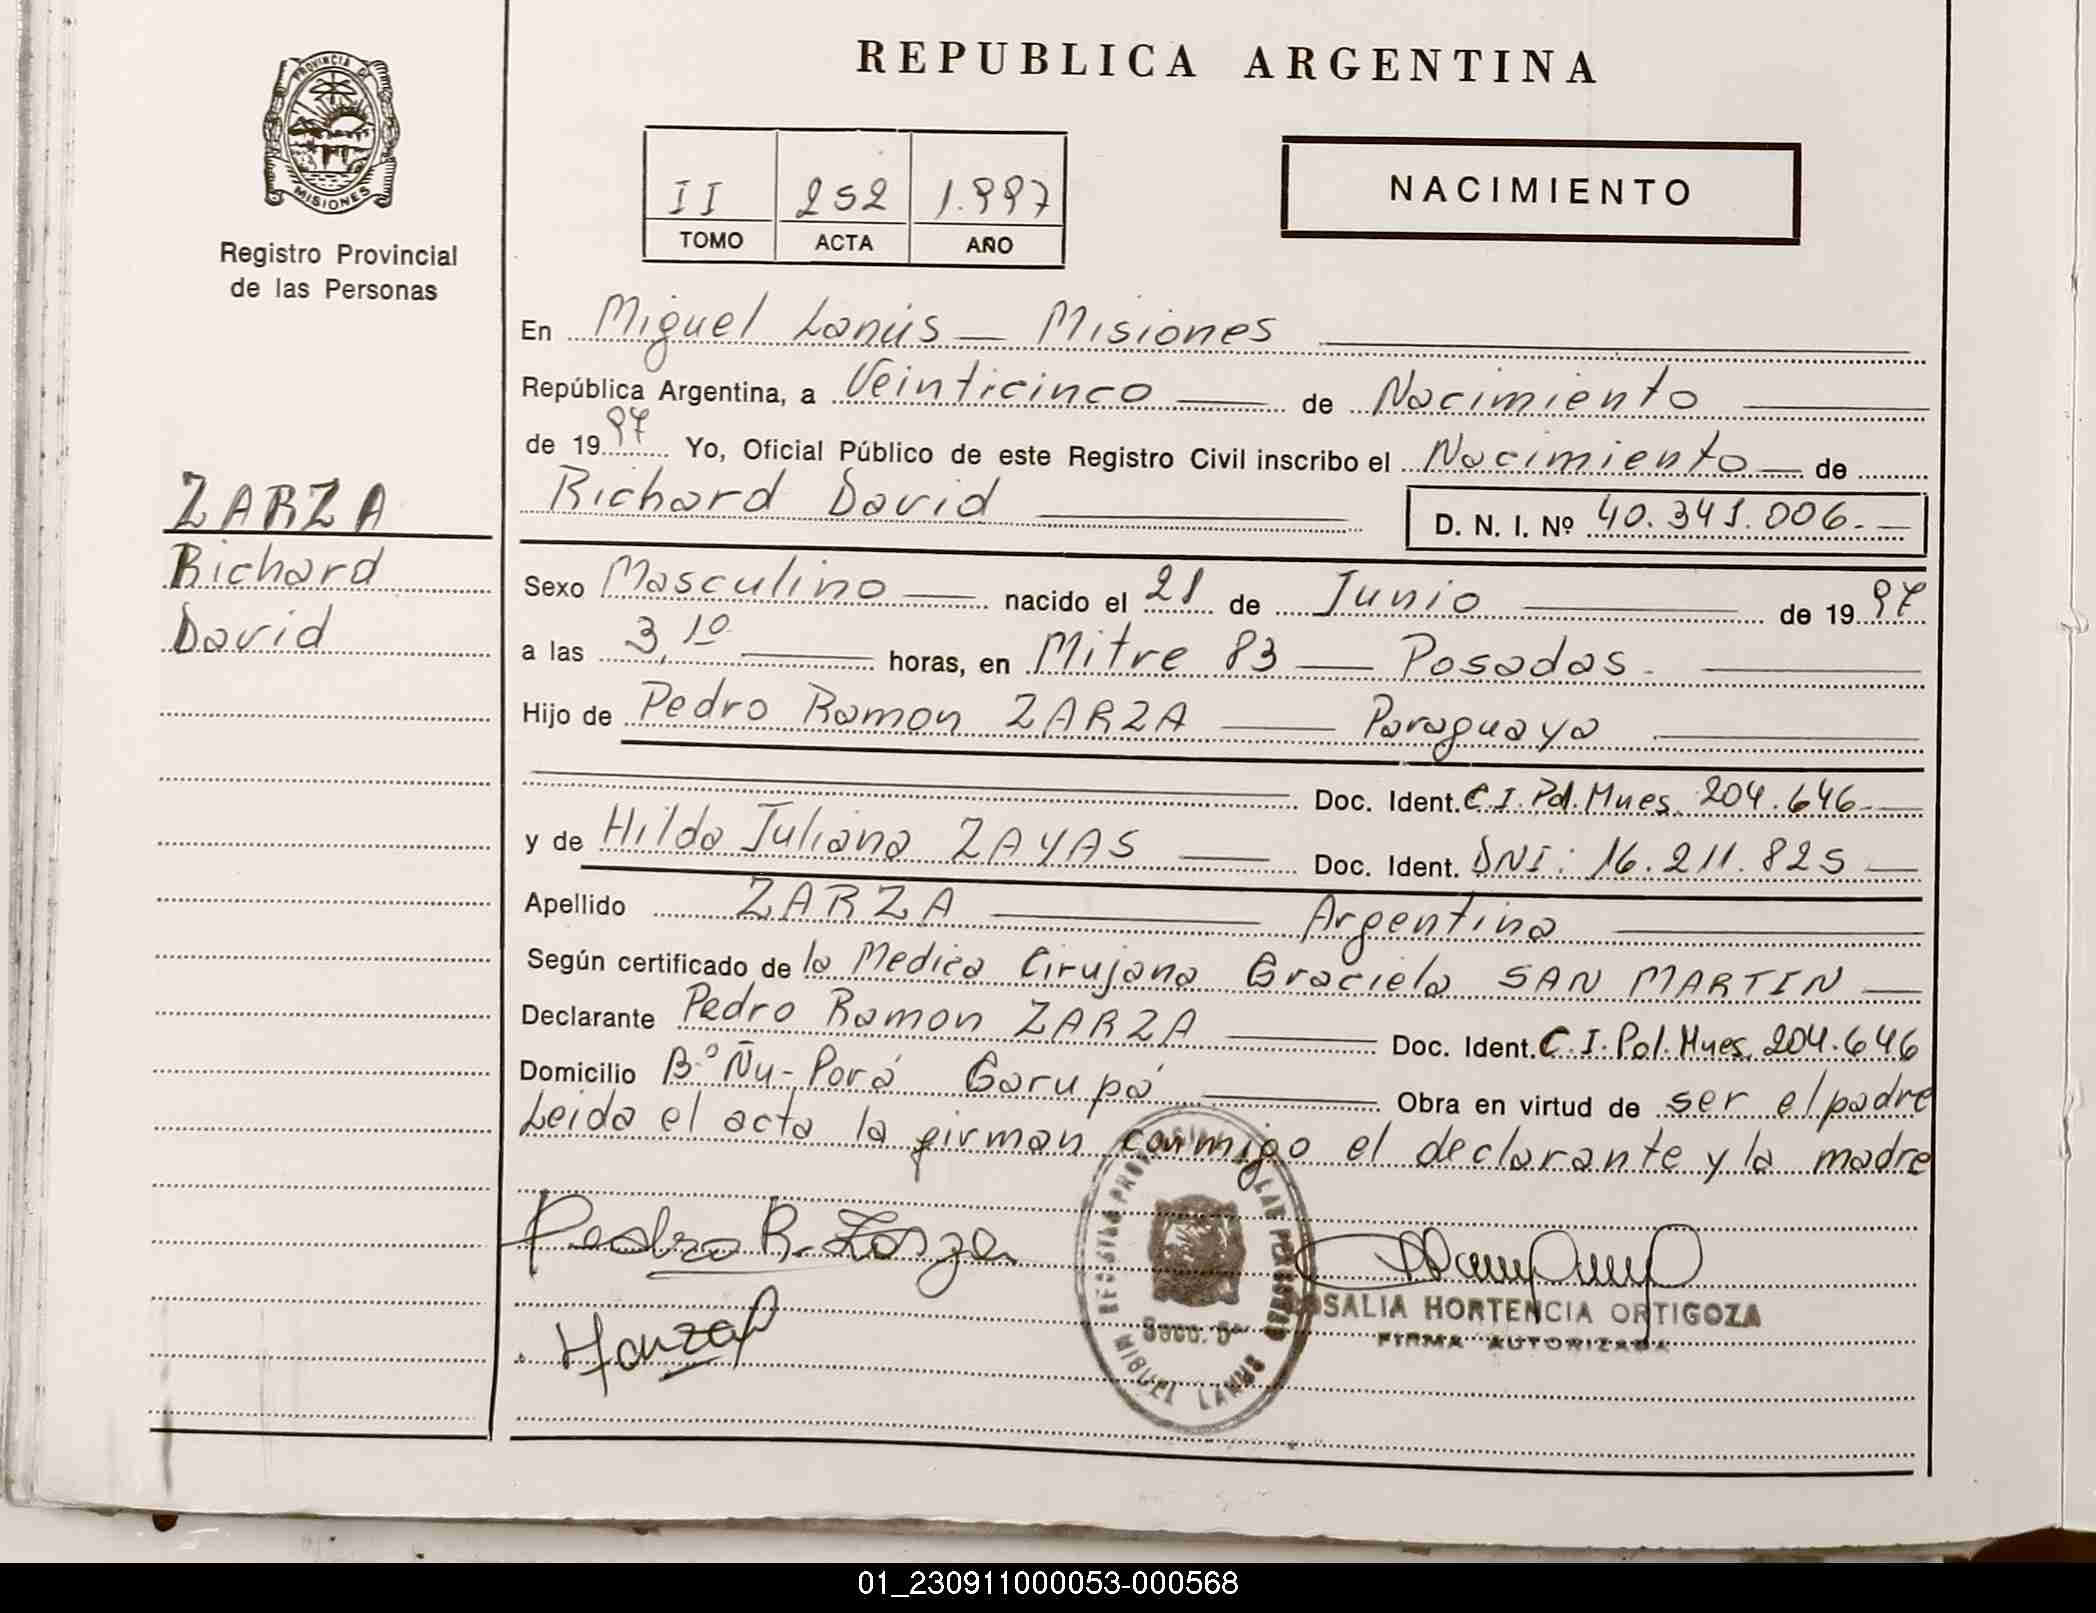 REPUBLICA ARGENTINA
PROVINCIA D
MISIONES
Registro Provincial
de las Personas
II 252 1.997
TOMO ACTA AÑO
NACIMIENTO
En Miguel Lanús — Misiones
República Argentina, a Veinticinco de Nacimiento
de 1997 Yo, Oficial Público de este Registro Civil inscribo el Nacimiento — de
Richard David D. N. I. Nº 40.341.006.-
ZARZA
Richard
David
Sexo Masculino — nacido el 21 de Junio de 1997
a las 3,10 horas, en Mitre 83 — Posadas.
Hijo de Pedro Ramon ZARZA — Paraguaya
Doc. Ident. C.I.Pol.Mnes. 204.646-
y de Hilda Juliana ZAYAS — Doc. Ident. DNI: 16.211.825 —
Apellido ZARZA — Argentina
Según certificado de la Medica Cirujana Graciela SAN MARTIN —
Declarante Pedro Ramon ZARZA — Doc. Ident. C.I.Pol.Mnes. 204.646
Domicilio Bº Ñu-Porá Garupá — Obra en virtud de ser el padre
Leida el acta la firman conmigo el declarante y la madre
Pedro R. Zarza
REGISTRO PROVINCIAL LAS PERSONAS
MIGUEL LANUS
SALIA HORTENCIA ORTIGOZA
FIRMA AUTORIZADA
01_230911000053-000568